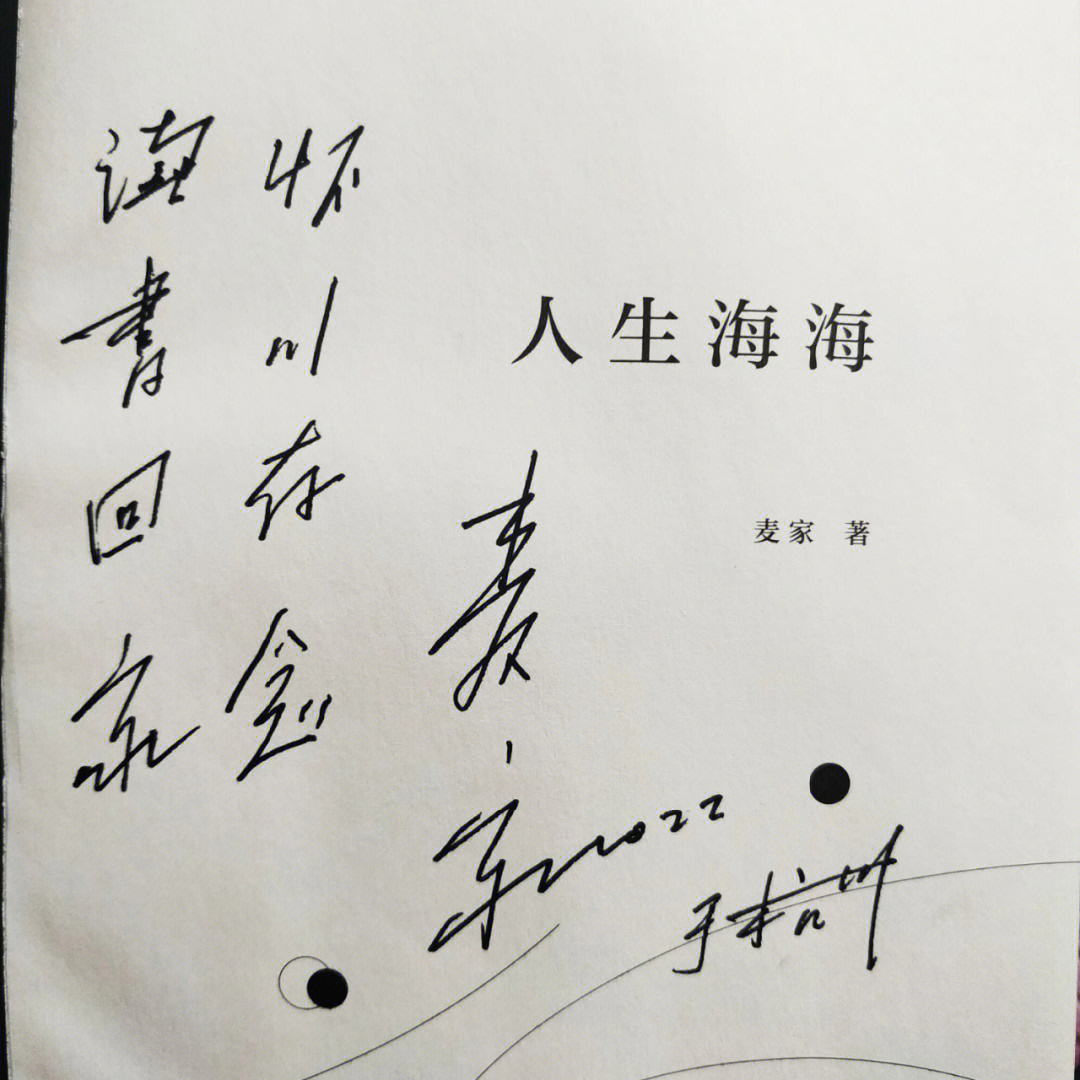 人生海海
麦家 著
怀川存念
读书回家
麦家 2022
于杭州